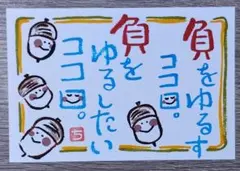 負をゆるす
ココロ。
負を
ゆるしたい
ココロ。
ち